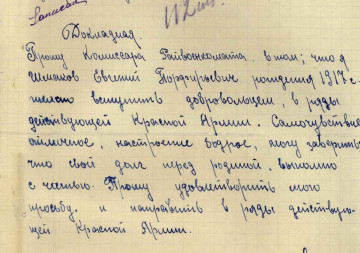 Докладная.
Прошу Комиссара Райвоенкомата, в том, что я
Шмаков Евгений Порфирьевич рождения 1917 г.
желаю вступить добровольцем, в ряды
действующей Красной Армии. Самочувствие
отличное, настроение бодрое, могу заверить
что свой долг перед родиной, выполню
с честью. Прошу удовлетворить мою
просьбу, и направить в ряды действую-
щей Красной Армии.